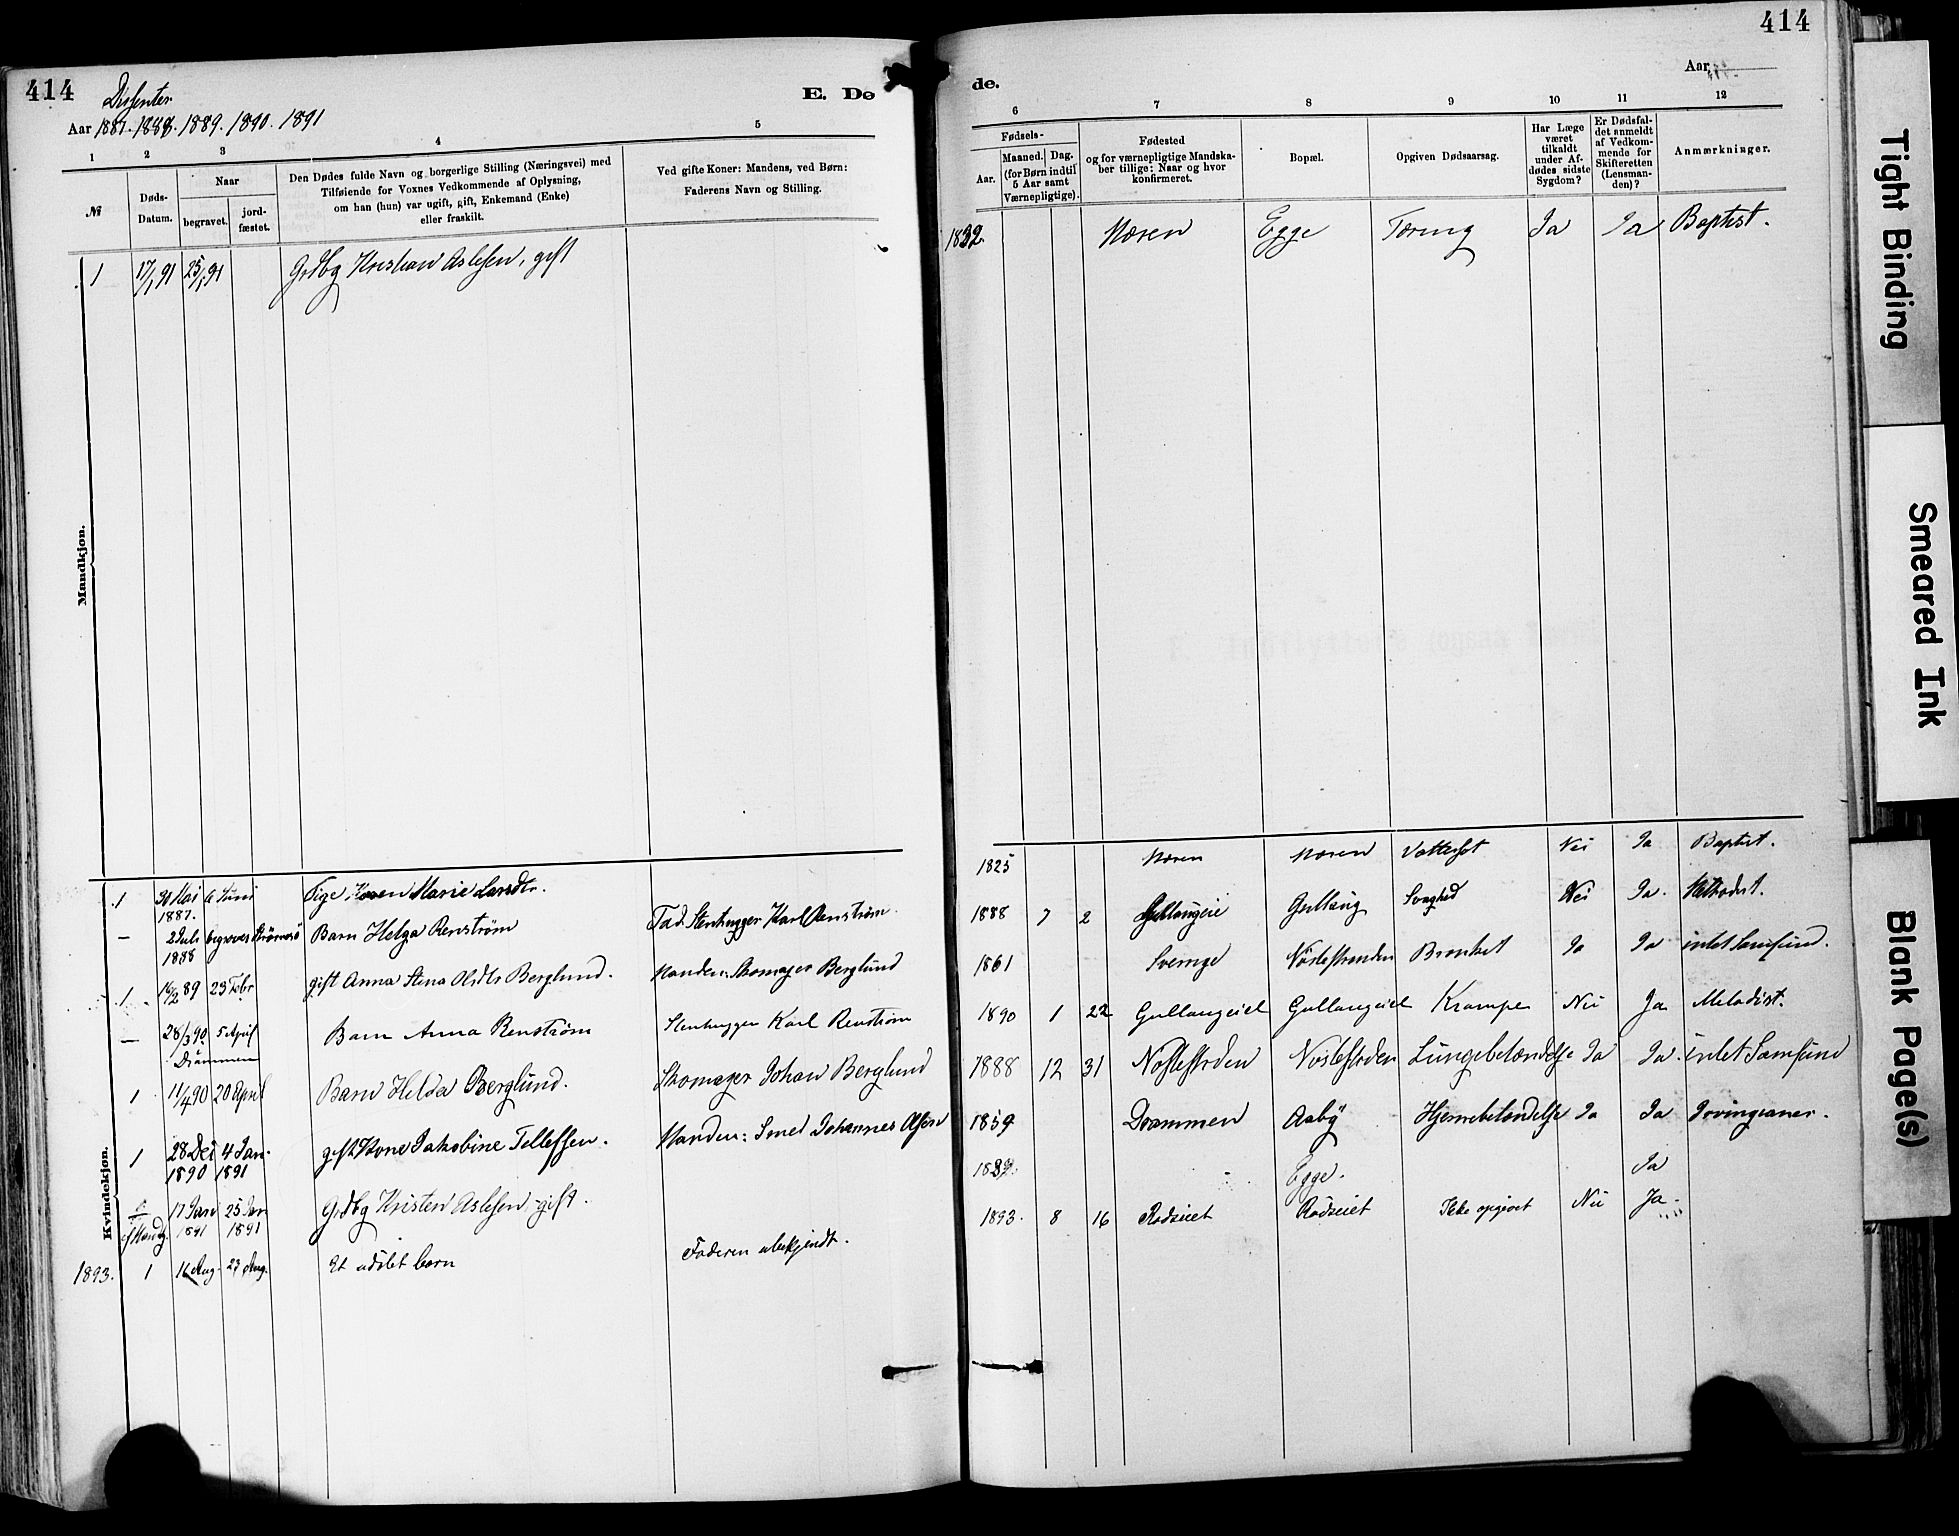 414
Dissenter
Aar 1887. 1888. 1889. 1890. 1891
E. De
1 2 3 4 5
№
Døds-
Datum.
Naar
begravet.
jord-
fæstet.
Den Dødes fulde Navn og borgerlige Stilling (Næringsvei) med
Tilføiende for Voxnes Vedkommende af Oplysning,
om han (hun) var ugift, gift, Enkemand (Enke)
eller fraskilt.
Ved gifte Koner: Mandens, ved Børn:
Faderens Navn og Stilling.
Mandkjøn.
1 17/1 91 25/1 91 Grdbg Kristian Aslesen, gift
Kvindekjøn.
1 30 Mai 6 Juni Pige Karen Marie Larsdtr.
1887.
— 2 Juli begraves Strømsø Barn Helga Renström Fad. Stenhugger Karl Renström.
1888
1 16/2 89 23 Febr gift Anna Stina Olsdtr Berglund. Manden: Skomager Berglund
— 28/3 90 5 April Barn Anna Renström Stenhugger Karl Renström
Drammen
1 11/4 90 20 April Barn Helda Berglund. Skomager Johan Berglund
1 28 Dec 4 Jan. gift Kone Jakobine Tellefsen. Manden: Smed Johannes Olsen
1890 1891
17 Jan 25 Jan Grdbg Kristen Aslesen, gift.
1891 1891
1893. 1 16 Aug. 23 Aug. Et udöbt barn Faderen ubekjendt.
414
Aar
de.
6 7 8 9 10 11 12
Fødsels-
Aar.
Maaned. Dag.
(for Børn indtil
5 Aar samt
Værnepligtige).
Fødested
og for værnepligtige Mandska-
ber tillige: Naar og hvor
konfirmeret.
Bopæl.
Opgiven Dødsaarsag.
Har Læge
været
tilkaldt
under Af-
dødes sidste
Sygdom?
Er Dødsfal-
det anmeldt
af Vedkom-
mende for
Skifteretten
(Lensman-
den)?
Anmærkninger.
1832. Mæren Egge Tæring Ja Ja Baptist.
1825 Mæren Mæren Vattersot Nei Ja Baptist.
1888 7 2 Gullaugeie Gullaug Svaghed Nei Ja. Methodist.
1861 Sverrige Nöstestranden Bronket Ja Ja intet Samfund.
1890 1 22 Gullaugeiet Gullaugeiet Krampe Nei Ja Metodist.
1888 12 31 Nöstestranden Nöstestranden Lungebetændelse Ja Ja. intet Samfund
1859 Drammen Aaby Hjernebetændelse Ja Ja Irvingianer.
Egge. Ja
1893. 8 16 Rödseiet Rödseiet Ikke opgivet Nei Ja.
Tight Binding
Smeared Ink
Blank Page(s)